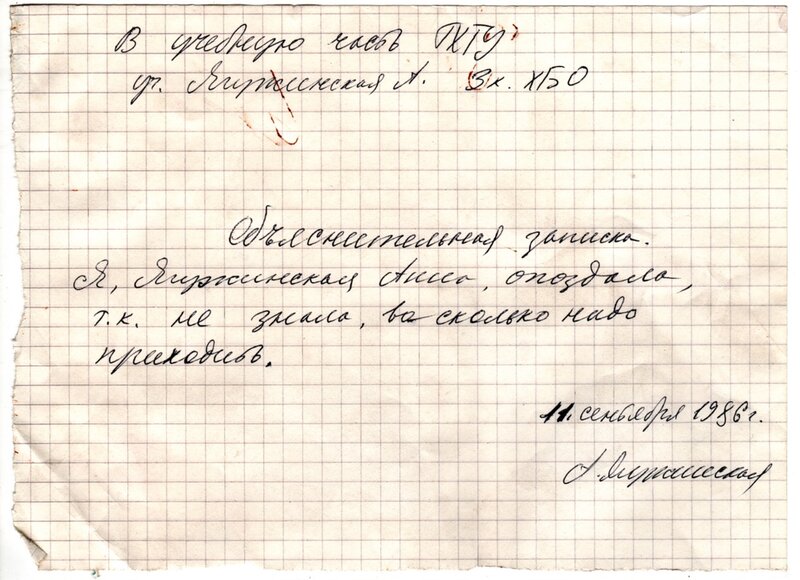 В учебную часть ТХТУ
уч. Яиржинская А. 3 к. ХБО
Объяснительная записка.
Я, Яиржинская Анна, опоздала,
т.к. не знала, во сколько надо
приходить.
11. сентября 1986 г.
А. Яиржинская